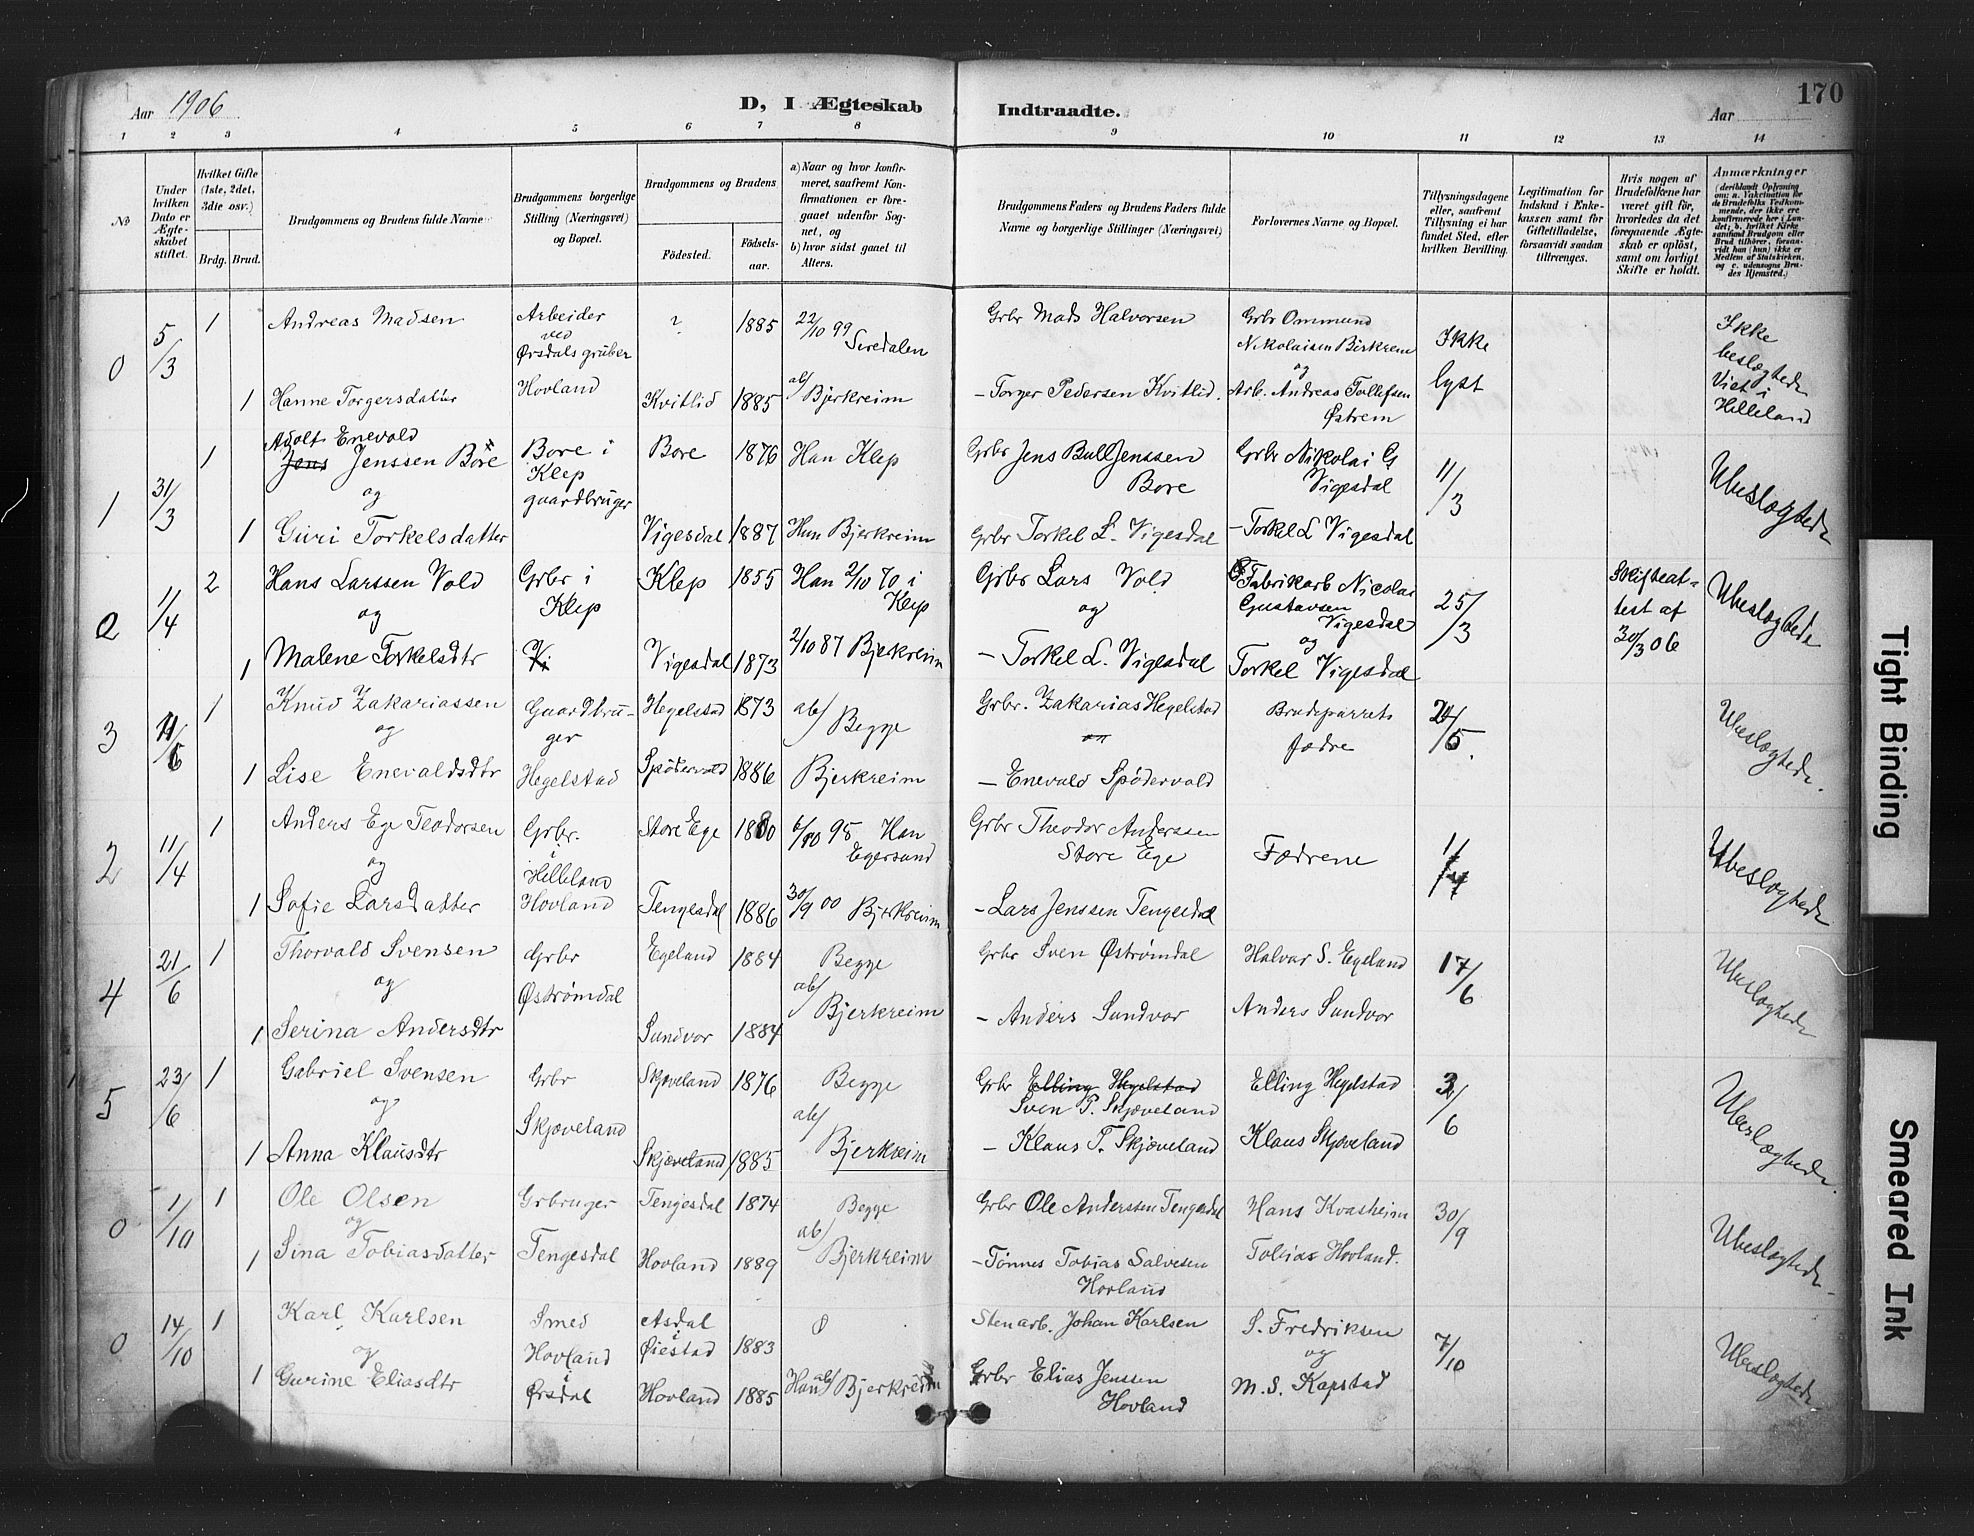 Aar 1906
D, I Ægteskab
Indtraadte.
Aar
170
1 2 3 4 5 6 7 8 9 10 11 12 13 14
No
Under hvilken Dato er Ægteskabet stiftet.
Hvilket Gifte (1ste, 2det, 3die osv.)
Brdg. Brud.
Brudgommens og Brudens fulde Navne
Brudgommens borgerlige Stilling (Næringsvei) og Bopæl.
Brudgommens og Brudens
Fødested.
Fødselsaar.
a) Naar og hvor konfirmeret, saafremt Konfirmationen er foregaaet udenfor Sognet, og
b) hvor sidst gaaet til Alters.
Brudgommens Faders og Brudens Faders fulde Navne og borgerlige Stillinger (Næringsvei)
Forlovernes Navne og Bopæl.
Tillysningsdagene eller, saafremt Tillysning ei har fundet Sted, efter hvilken Bevilling.
Legitimation for Indskud i Enkekassen samt for Giftetilladelse, forsaavidt saadan tiltrænges.
Hvis nogen af Brudefolkene har været gift før, hvorledes da det foregaaende Ægteskab er opløst, samt om lovligt Skifte er holdt.
Anmærkninger
(deriblandt Oplysning om: a. Vakcination for de Brudefolks Vedkommende, der ikke ere konfirmerede her i Landet; b. hvilket Kirkesamfund Brudgom eller Brud tilhører, forsaavidt han (hun) ikke er Medlem af Statskirken, og c. udensogns Brudes Hjemsted.)
0 5/3 1 Andreas Madsen Arbeider ved Ørsdals gruber ? 1885 22/10 99 Siredalen Grbr Mads Halvorsen Grbr Ommund Nikolaisen Birkrem Ikke lyst Ikke beslægtede Viet i Helleland
1 Hanne Torgersdatter Hovland Kvitlid 1885 ab/ Bjerkreim – Torger Pedersen Kvitlid. og Arb. Andreas Tollefsen Østrem
1 31/3 1 Adolf Enevold Jens Jenssen Bore Bore i Klep gaardbruger Bore 1876 Han Klep Grbr Jens Bull Jenssen Bore Grbr Nikolai G Vigesdal 11/3 Ubeslægtede
og
1 Guri Torkelsdatter Vigesdal 1887 Hun Bjerkreim Grbr Torkel L. Vigesdal – Torkel L Vigesdal
2 1/4 2 Hans Larssen Vold Grbr i Klep Klep 1855 Han 2/10 70 i Klep Grbr Lars Vold Fabrikarb Nicolai Gustavsen Vigesdal 25/3 Skifteattest af 30/3 06 Ubeslægtede
og
1 Malene Torkelsdtr Vi Vigesdal 1873 2/10 87 Bjerkreim – Torkel L. Vigesdal og Torkel Vigesdal
3 1 Knud Zakariassen Gaardbruger Hegelstad 1873 ab/ Begge Grbr. Zakarias Hegelstad Brudeparrets fædre Ubeslægtede.
og
1 Lise Enevaldsdtr Hegelstad Spødervold 1886 Bjerkreim – Enevald Spødervold
2 11/4 1 Anders Ege Teodorsen Grbr. i Helleland Store Ege 1880 6/10 95 Han Egersund Grbr Theodor Anderssen Store Ege Fædrene 1/4 Ubeslægtede
og
1 Sofie Larsdatter Hovland Tengesdal 1886 30/9 00 Bjerkreim – Lars Jenssen Tengesdal
4 21/6 1 Thorvald Svensen Grbr Østrømdal Egeland 1884 Begge ab/ Bjerkreim Grbr Sven Østrømdal Halvar S. Egeland 17/6 Ubeslægtede
og
1 Serina Andersdtr Sundvor 1884 – Anders Sundvor Anders Sundvor
5 23/6 1 Gabriel Svensen Grbr Skjæveland Skjæveland 1876 Begge ab/ Bjerkreim Grbr Elling Hegelstad Sven P. Skjæveland Elling Hegelstad 3/6 Ubeslægtede.
og
1 Anna Klausdtr Skjæveland 1885 – Klaus T. Skjæveland Klaus Skjæveland
0 1/10 1 Ole Olsen Grbruger Tengesdal Tengesdal 1874 Begge ab/ Bjerkreim Grbr Ole Anderssen Tengesdal Hans Kvasheim 30/9 Ubeslægtede
og
1 Sina Tobiasdatter Hovland 1889 – Tønnes Tobias Salvesen Hovland Tobias Hovland.
0 14/10 1 Karl Karlsen Smed Hovland i Ørsdal Asdal i Øiestad 1883 0 Stenarb. Johan Karlsen S. Fredriksen 7/10 Ubeslægtede
og
1 Gurine Eliasdtr Hovland 1885 Hun ab/ Bjerkreim Grbr Elias Jenssen Hovland og M. S. Kapstad
Tight Binding
Smeared Ink